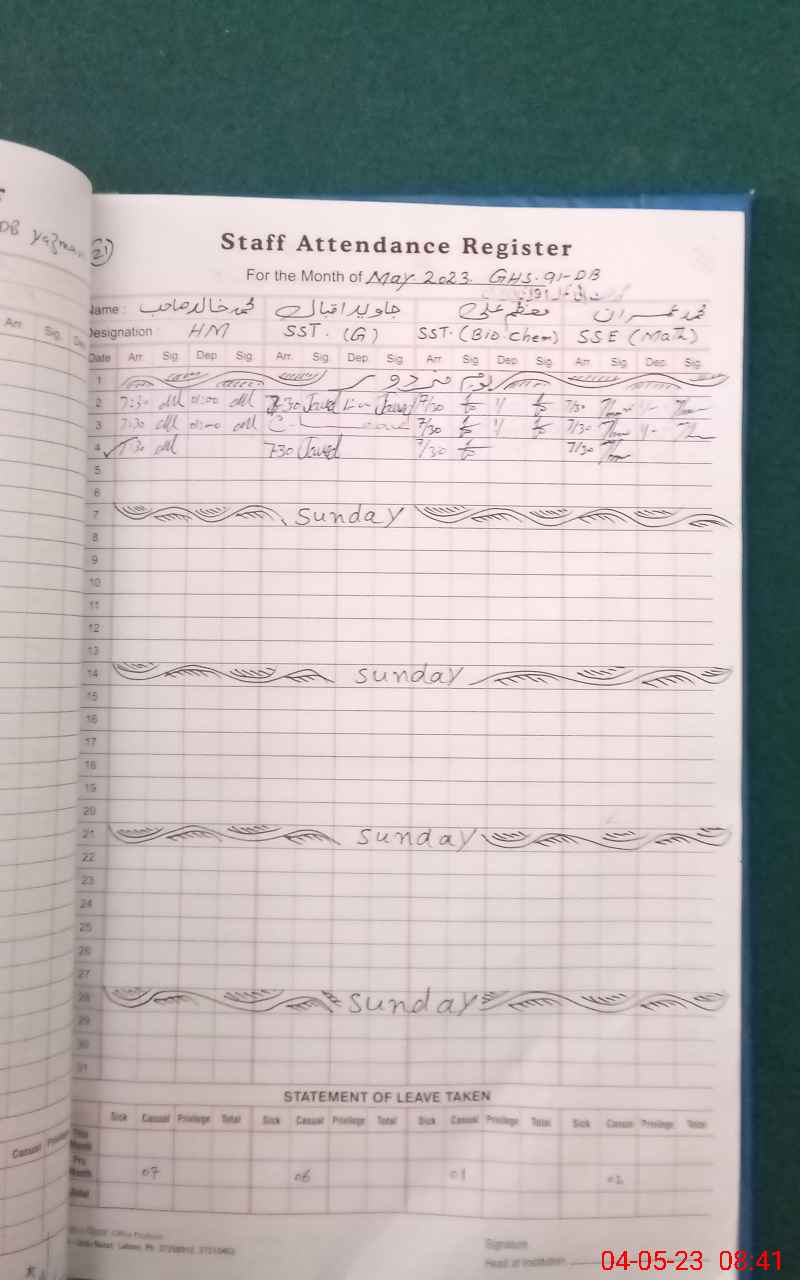 DB Yazman
Arr. Sig.
21
Staff Attendance Register
For the Month of May 2023. GHS. 91-DB
Name : محمد خالد صاحب جاوید اقبال معظم علی محمد عمران
Designation : HM SST. (G) SST. (Bio Chem) SSE (Math)
Date Arr. Sig. Dep. Sig. Arr. Sig. Dep. Sig. Arr. Sig. Dep. Sig. Arr. Sig. Dep. Sig.
1 یوم مزدور
2 7:30 01:00 7:30 Javed Javed 7/30 7/30
3 7:30 01:00 7/30 7/30
4 7:30 7:30 Javed 7/30 7/30
5
6
7 Sunday
8
9
10
11
12
13
14 Sunday
15
16
17
18
19
20
21 Sunday
22
23
24
25
26
27
28 Sunday
29
30
31
STATEMENT OF LEAVE TAKEN
Sick Casual Privilege Total Sick Casual Privilege Total Sick Casual Privilege Total Sick Casual Privilege Total
This Month
Pre. Month 07 06 01
Total
Casual Privilege
Signature
Head of Institution
04-05-23 08:41